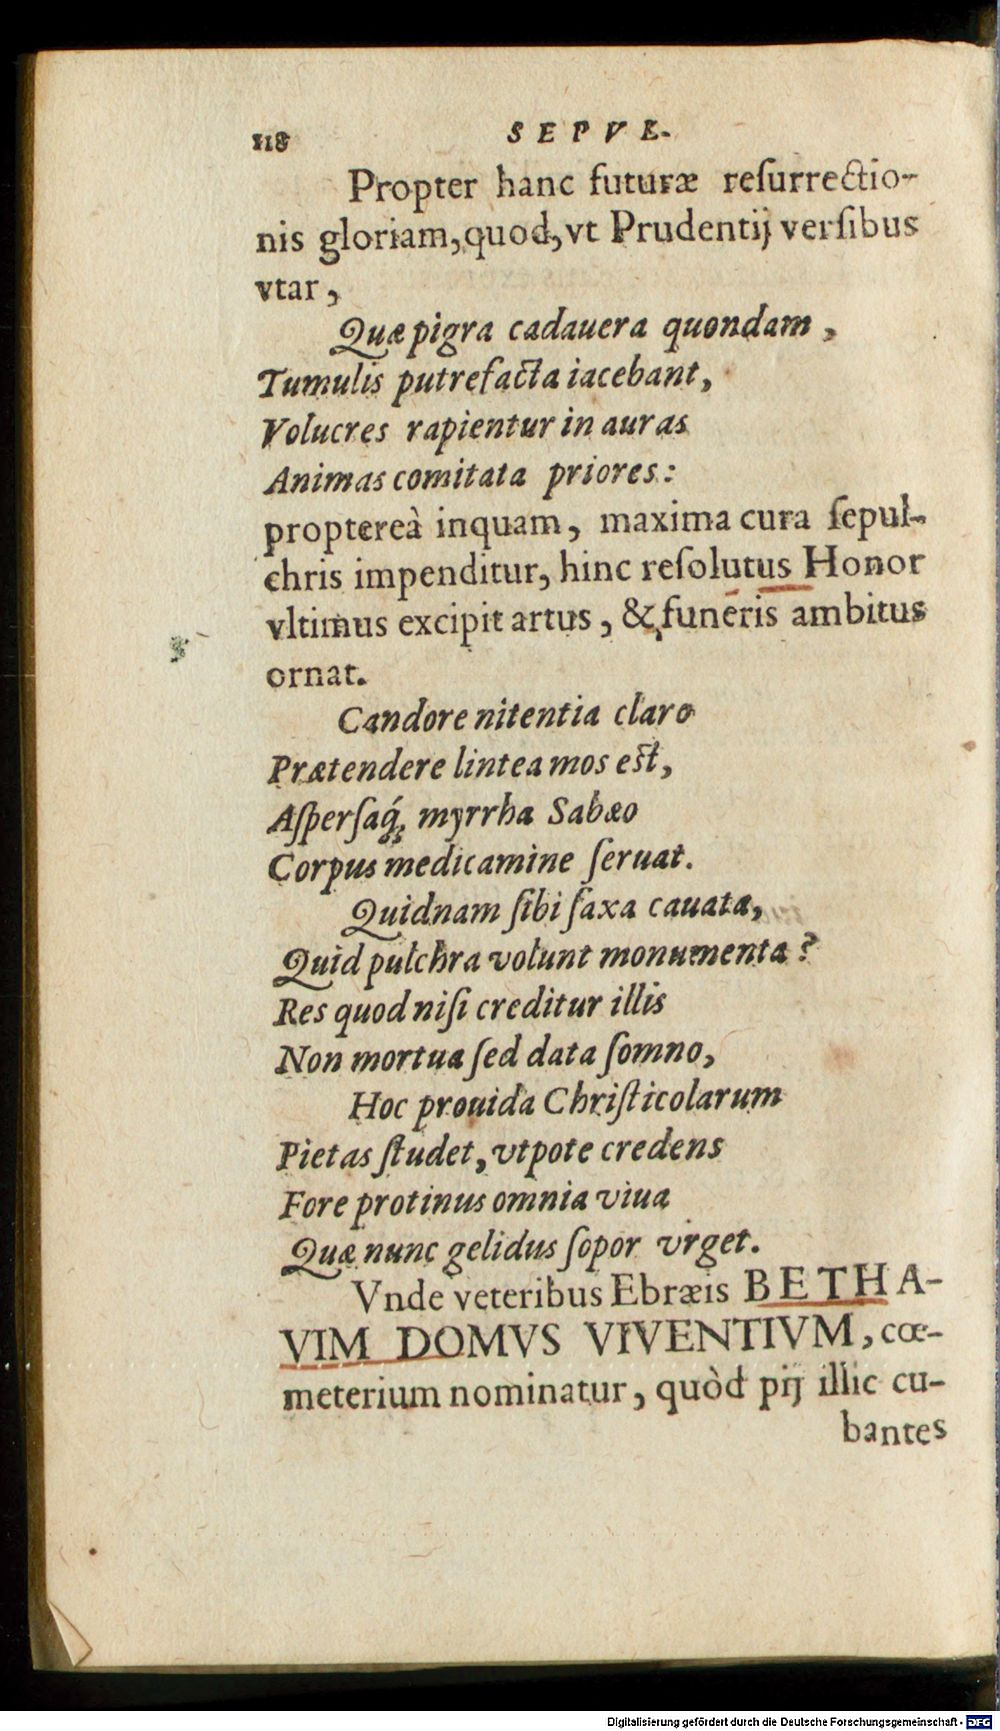 118 SEPVL.
Propter hanc futuræ reſurrectio-
nis gloriam, quod, vt Prudentij verſibus
vtar,
Quæ pigra cadauera quondam,
Tumulis putrefacta iacebant,
Volucres rapientur in auras
Animas comitata priores:
proptereà inquam, maxima cura ſepul-
chris impenditur, hinc reſolutus Honor
vltimus excipit artus, & funeris ambitus
ornat.
Candore nitentia claro
Prætendere lintea mos est,
Aſperſaq́; myrrha Sabæo
Corpus medicamine ſeruat.
Quidnam ſibi ſaxa cauata,
Quid pulchra volunt monumenta?
Res quod niſi creditur illis
Non mortua ſed data ſomno,
Hoc prouida Chriſticolarum
Pietas ſtudet, vtpote credens
Fore protinus omnia viua
Quæ nunc gelidus ſopor vrget.
Vnde veteribus Ebræis BETHA-
VIM DOMVS VIVENTIVM, cœ-
meterium nominatur, quòd pij illic cu-
bantes
Digitalisierung gefördert durch die Deutsche Forschungsgemeinschaft - DFG